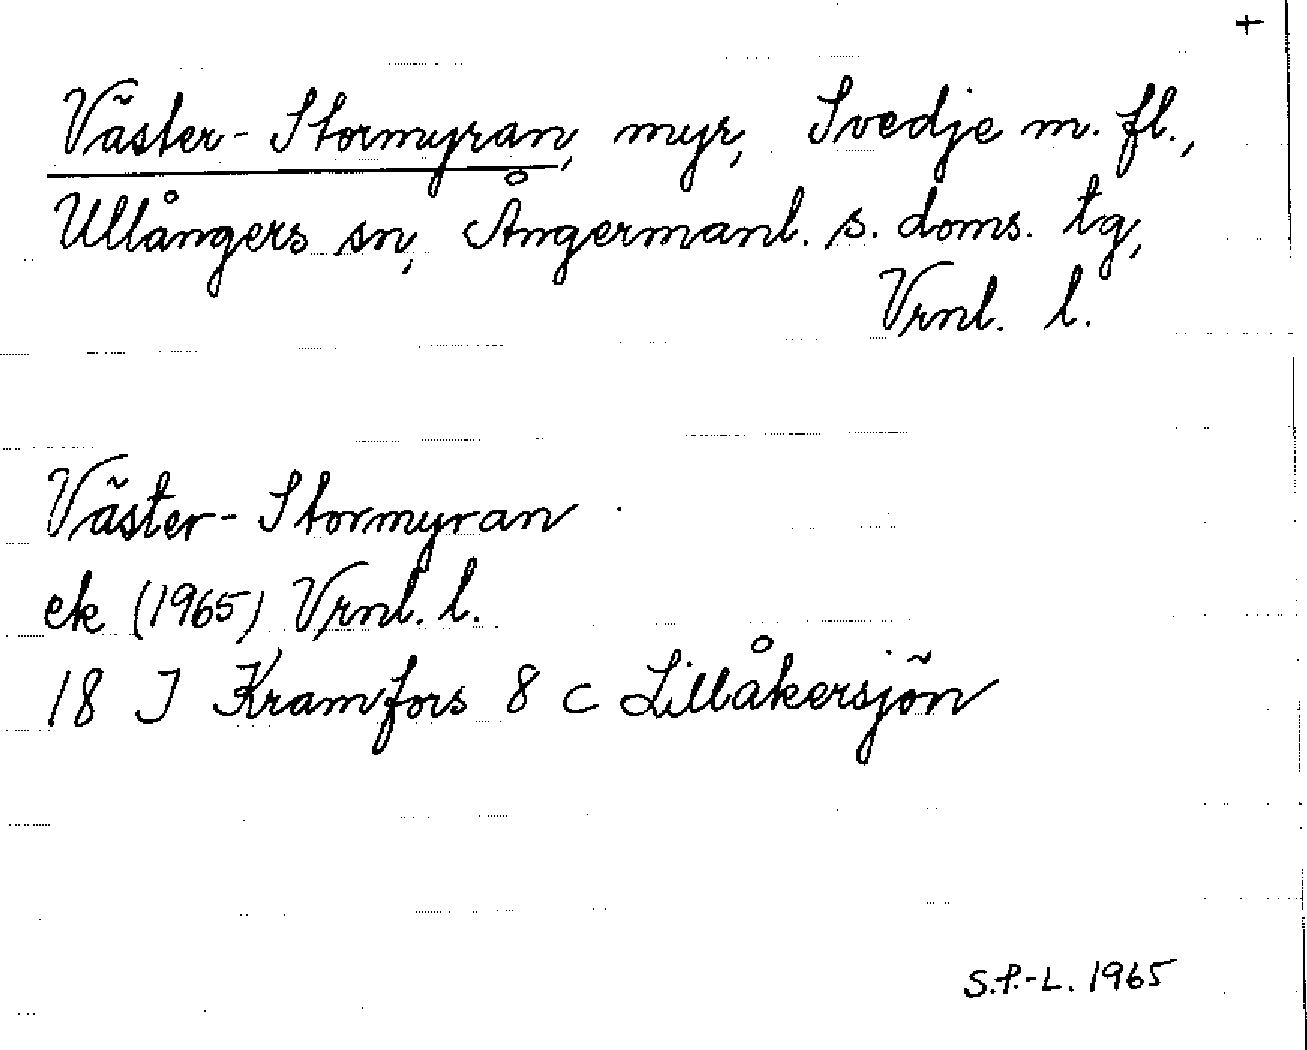 +
Väster-Stormyran, myr, Svedje m. fl.,
Ullångers sn, Ångermanl. s. doms. tg,
Vrnl. l.
Väster-Stormyran
ek (1965) Vrnl. l.
18 J Kramfors 8 c Lillåkersjön
S.P.-L. 1965